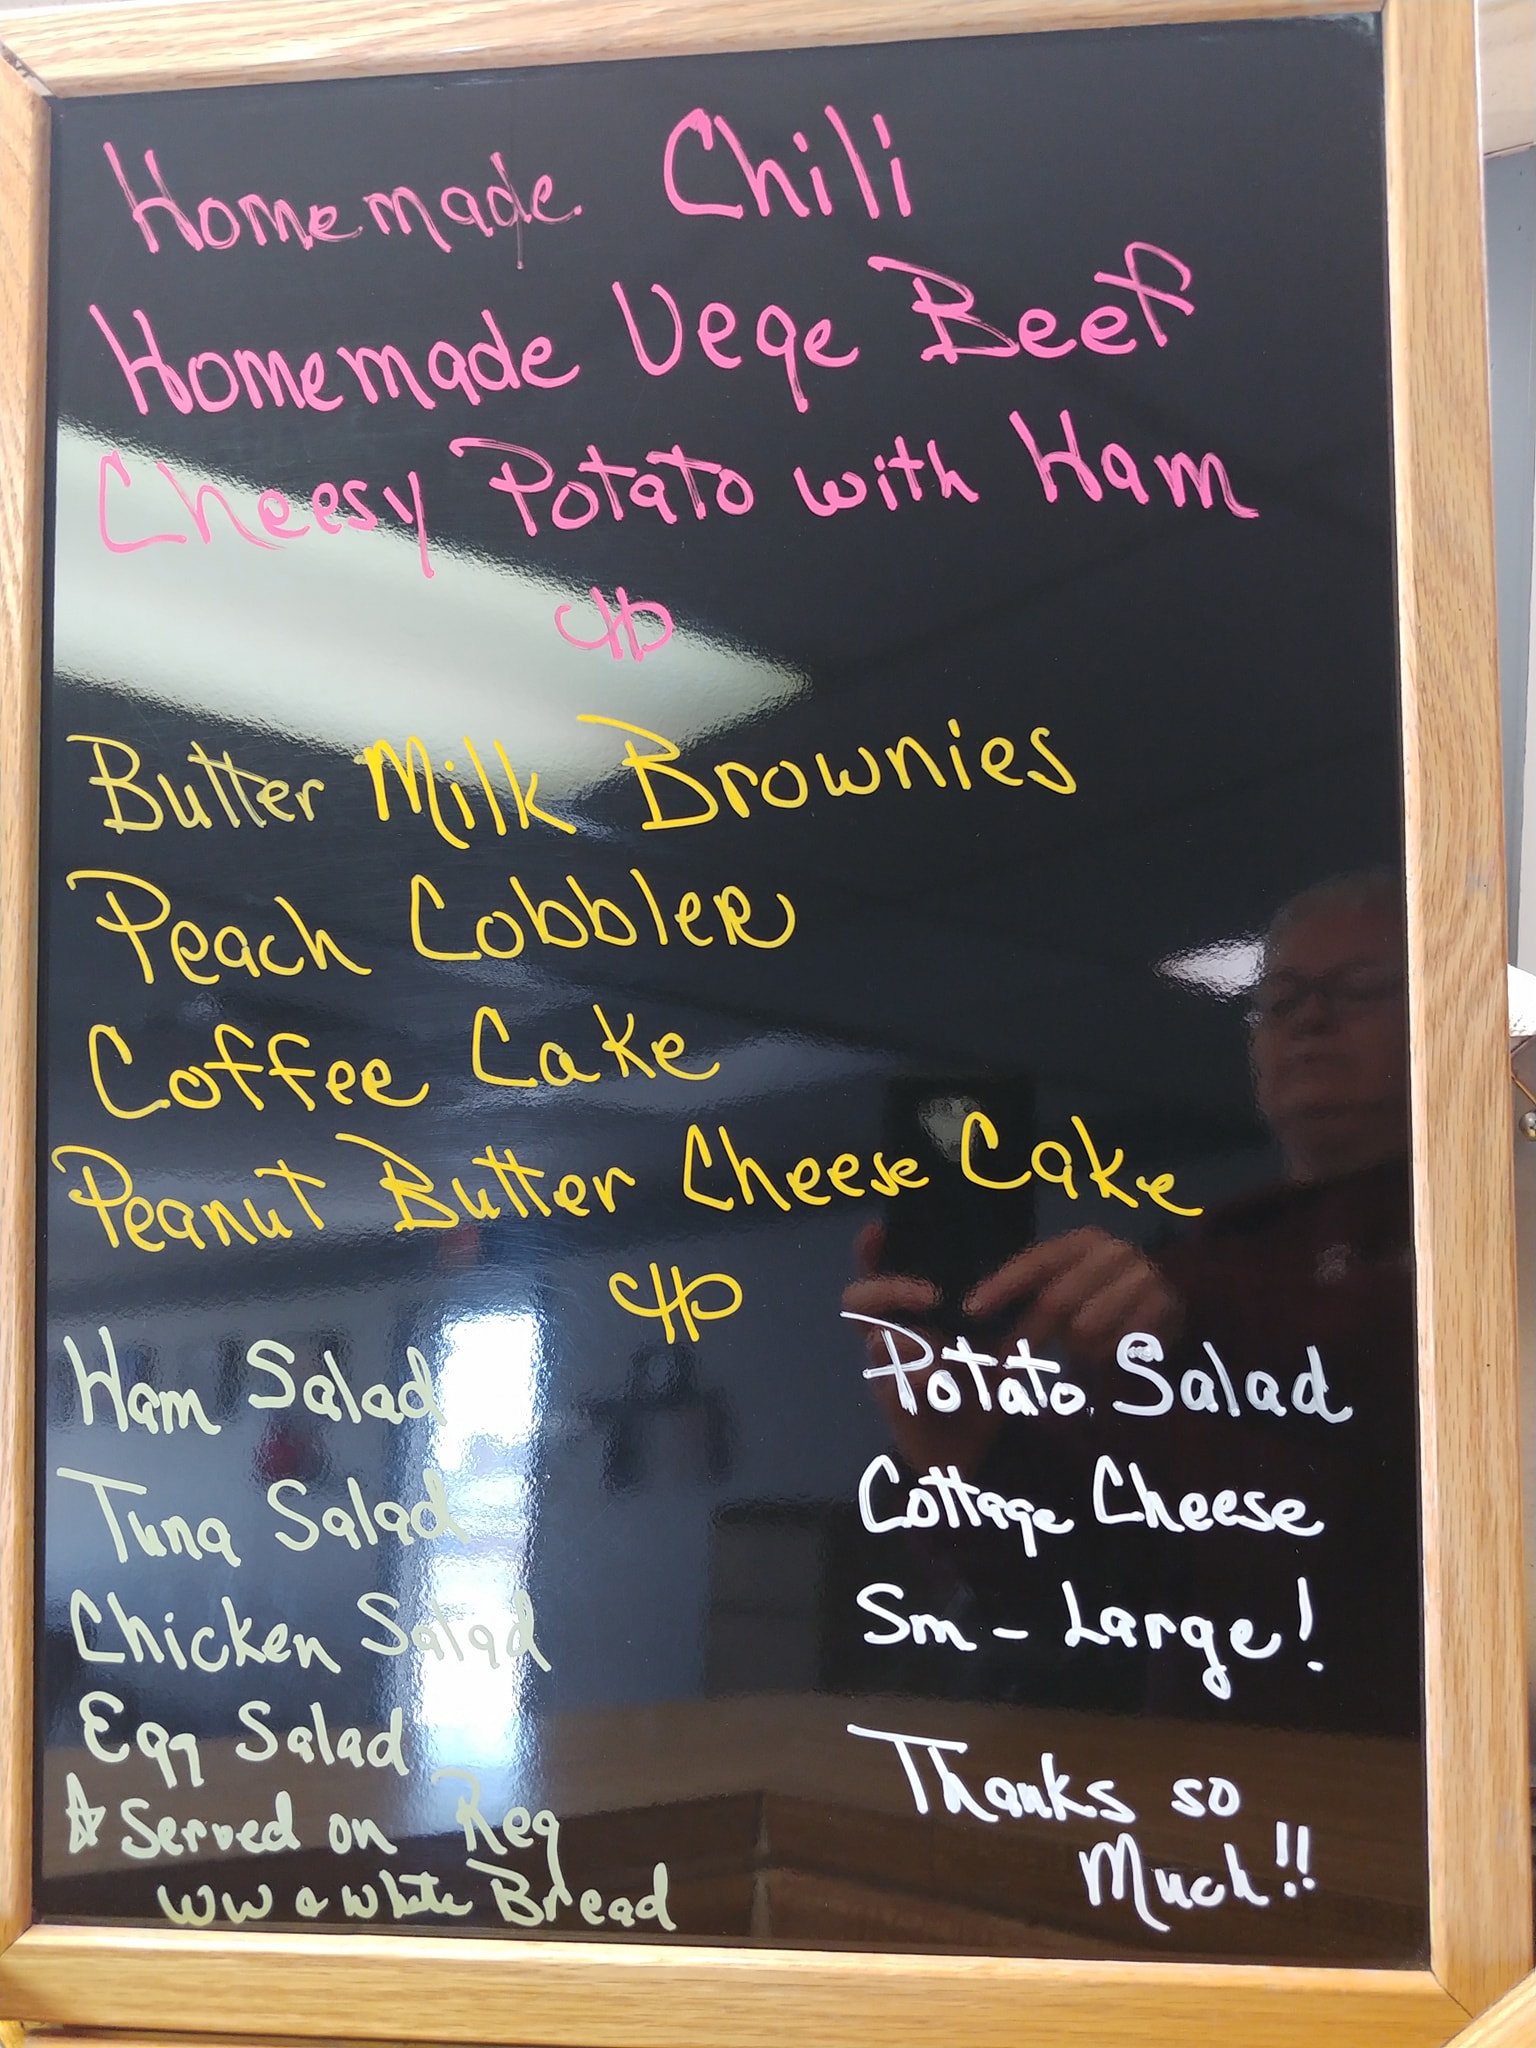 Homemade Chili
Homemade Vege Beef
Cheesy Potato with Ham
Butter Milk Brownies
Peach Cobbler
Coffee Cake
Peanut Butter Cheese Cake
Ham Salad
Tuna Salad
Chicken Salad
Egg Salad
☆ Served on Reg
WW & White Bread
Potato Salad
Cottage Cheese
Sm - Large!
Thanks so
Much!!